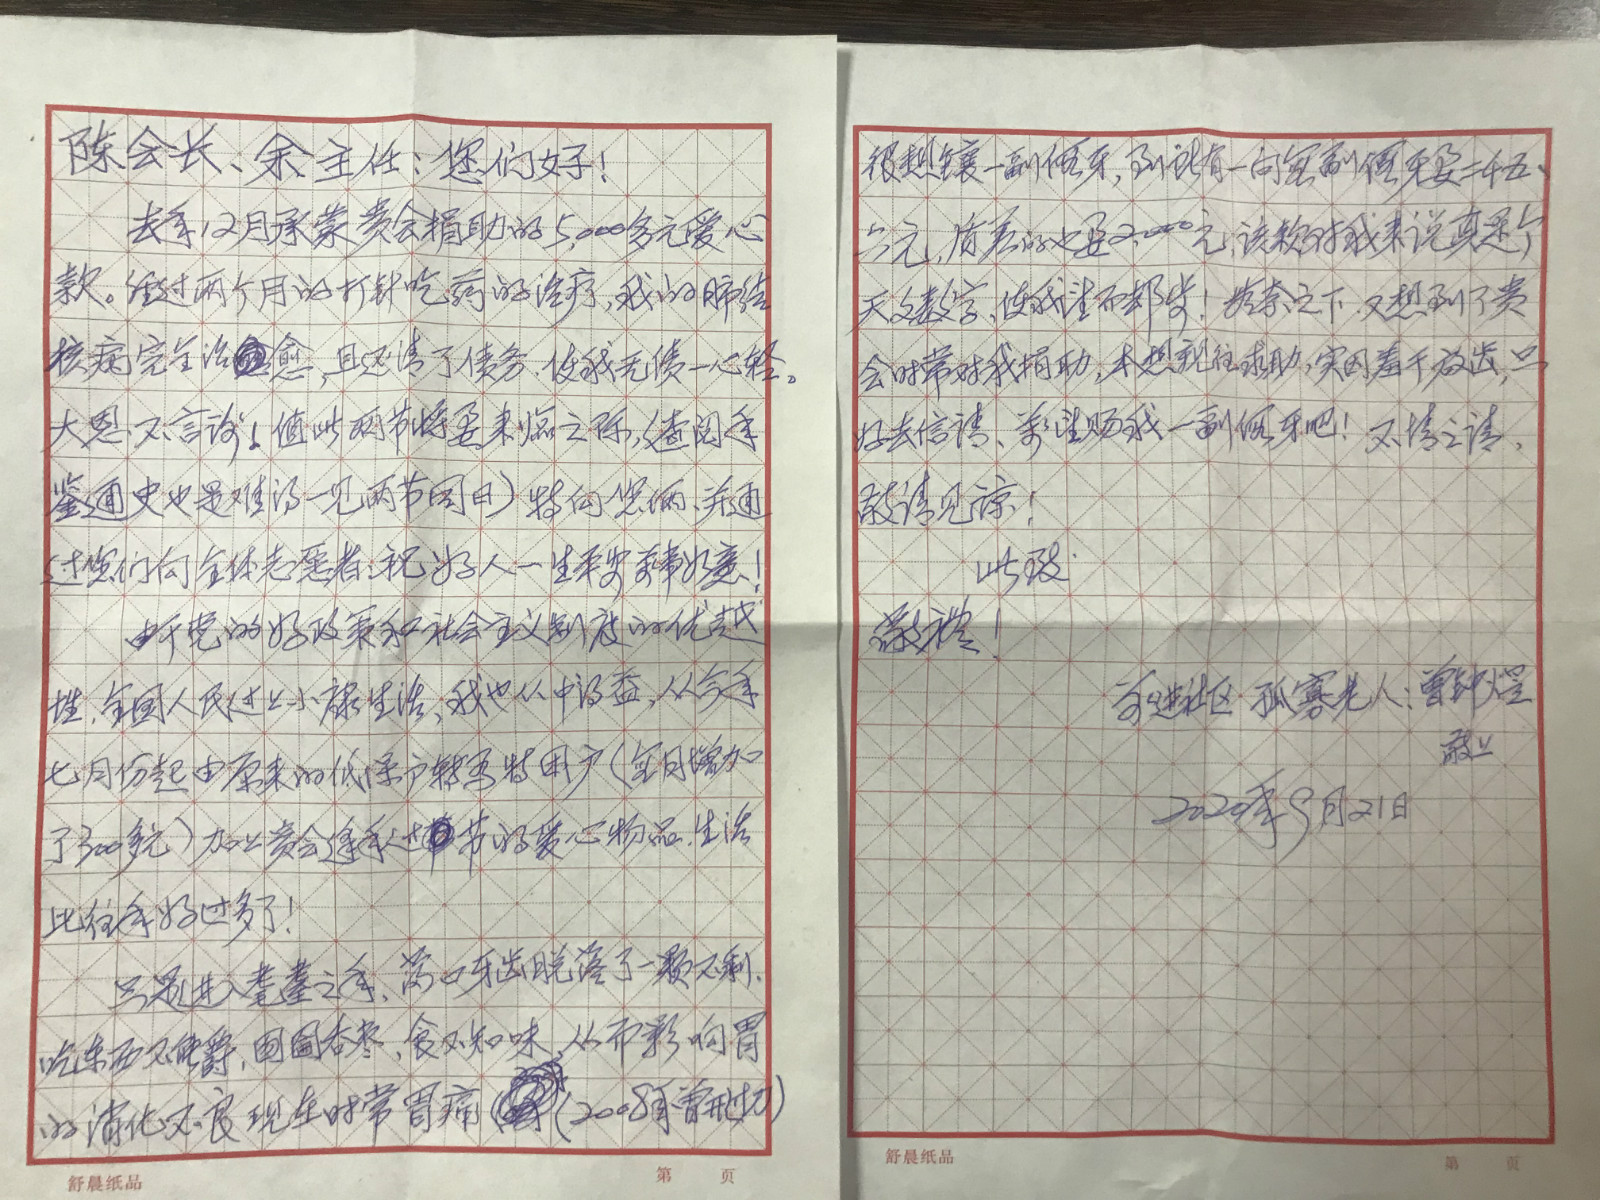 陈会长、余主任：您们好！
去年12月承蒙贵会捐助的5,000多元爱心
款。经过两个月的打针吃药的治疗，我的肺结
核病完全治愈，且还清了债务，使我无债一心轻。
大恩不言谢！值此两节将要来临之际，（查阅年
鉴通史也是难得一见两节同日）特向您俩、并通
过您们向全体志愿者：祝好人一生平安万事如意！
由于党的好政策和社会主义制度的优越
性，全国人民过上小康生活，我也从中得益，从今年
七月份起由原来的低保户转为特困户（每月增加
了300多元）加上贵会逢年过节的爱心物品，生活
比往年好过多了！
只是进入耄耋之年，满口牙齿脱落了一颗不剩，
吃东西不能嚼，囫囵吞枣，食不知味，从而影响胃
的消化不良现在时常胃痛（2008年曾开过刀）
很想镶一副假牙，到诊所一问每副假牙要二千五、
六元，质差的也要2,000元，该款对我来说真是个
天文数字，使我望而却步！无奈之下，又想到了贵
会时常对我捐助，本想亲往求助，实因羞于启齿，只
好去信请、希望赐我一副假牙吧！不情之请，
敬请见谅！
此致
敬礼！
前进社区 孤寡老人：曾钟煌
敬上
2020年9月21日
舒晨纸品
第 页
舒晨纸品
第 页